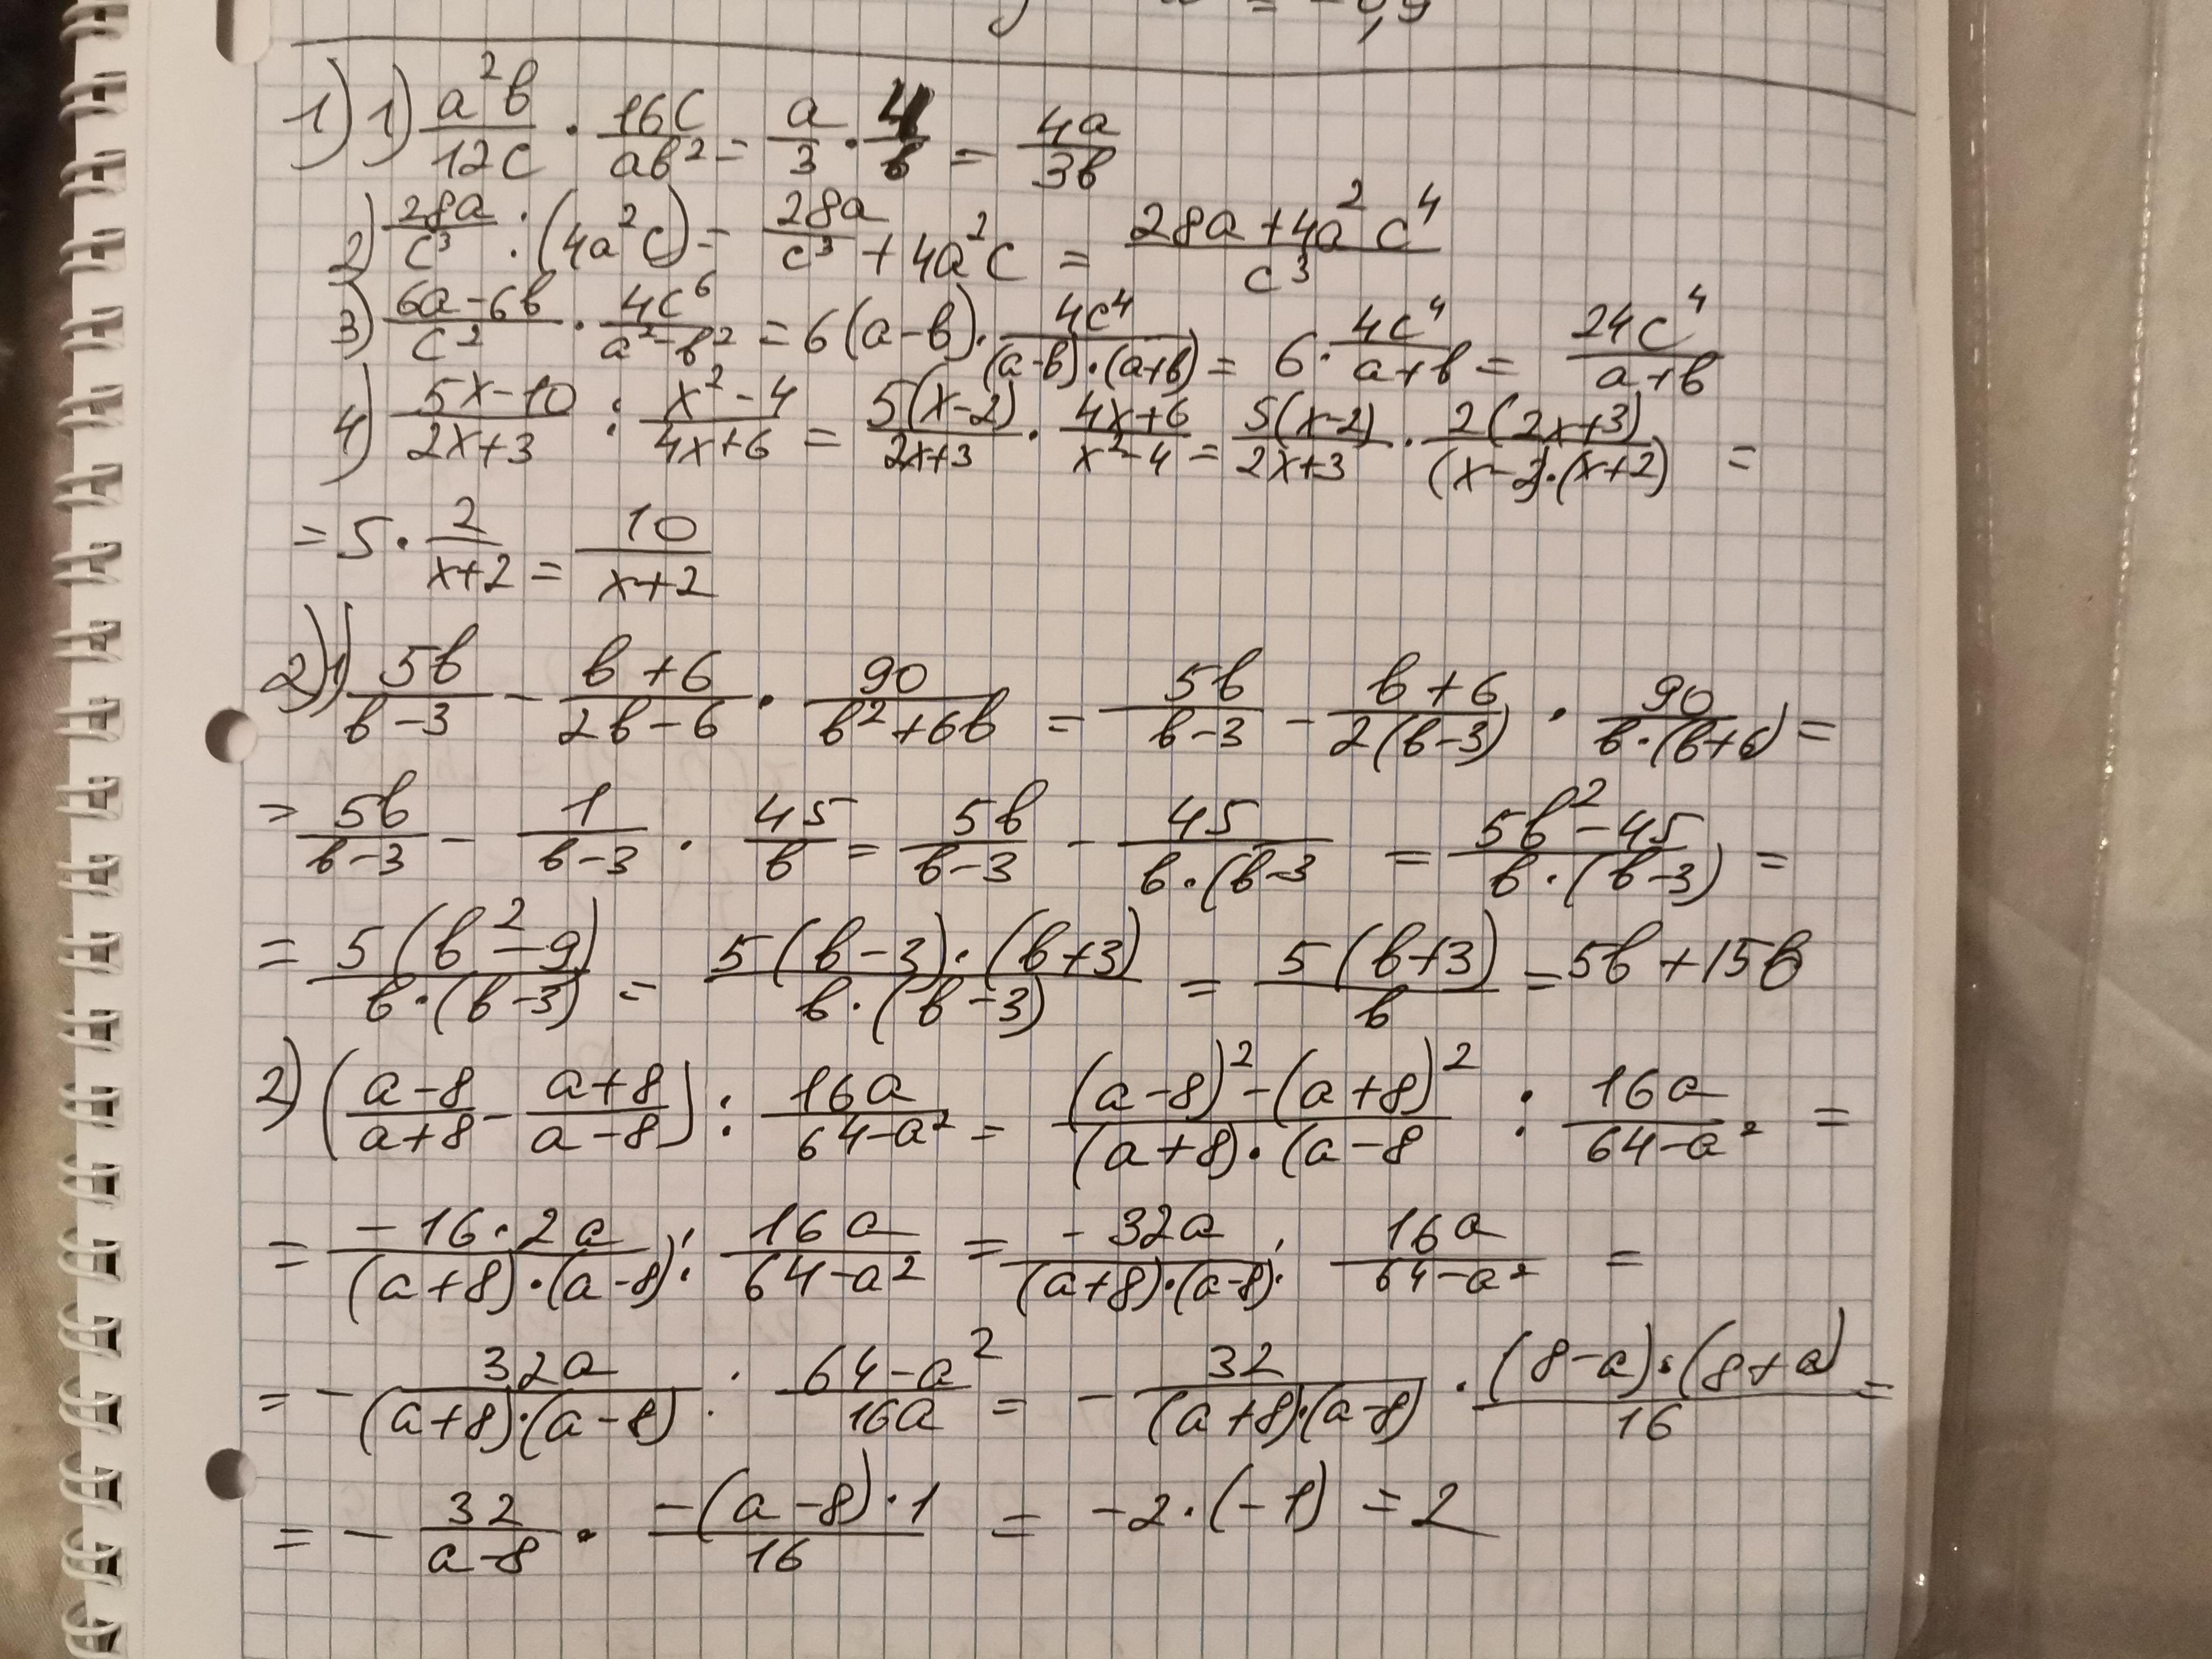 1) 1) a²b/12c · 16c/ab² = a/3 · 4/b = 4a/3b
2) 28a/c³ : (4a²c) = 28a/c³ + 4a²c = (28a + 4a²c⁴)/c³
3) (6a-6b)/c² · 4c⁶/(a²-b²) = 6(a-b) · 4c⁴/((a-b)·(a+b)) = 6 · 4c⁴/(a+b) = 24c⁴/(a+b)
4) (5x-10)/(2x+3) : (x²-4)/(4x+6) = 5(x-2)/(2x+3) · (4x+6)/(x²-4) = 5(x-2)/(2x+3) · 2(2x+3)/((x-2)·(x+2)) =
= 5 · 2/(x+2) = 10/(x+2)
2) 1) 5b/(b-3) - (b+6)/(2b-6) · 90/(b²+6b) = 5b/(b-3) - (b+6)/(2(b-3)) · 90/(b·(b+6)) =
= 5b/(b-3) - 1/(b-3) · 45/b = 5b/(b-3) - 45/(b·(b-3) = (5b²-45)/(b·(b-3)) =
= 5(b²-9)/(b·(b-3)) = 5(b-3)·(b+3)/(b·(b-3)) = 5(b+3)/b = 5b+15b
2) ((a-8)/(a+8) - (a+8)/(a-8)) : 16a/(64-a²) = ((a-8)²-(a+8)²)/((a+8)·(a-8) : 16a/(64-a²) =
= (-16·2a)/((a+8)·(a-8)) : 16a/(64-a²) = -32a/((a+8)·(a-8)) : 16a/(64-a²) =
= - 32a/((a+8)·(a-8)) : (64-a²)/16a = - 32/((a+8)·(a-8)) · (8-a)·(8+a)/16 =
= - 32/(a-8) · (-(a-8)·1)/16 = -2·(-1) = 2